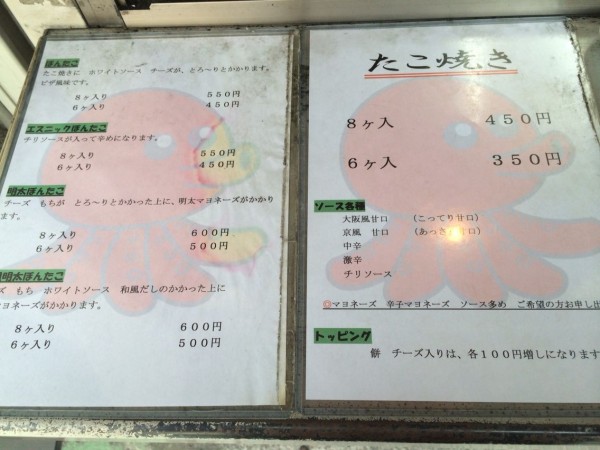 ぽんたこ
たこ焼きに ホワイトソース チーズが、とろ～りとかかります。
ピザ風味です。
8ヶ入り 550円
6ヶ入り 450円
エスニックぽんたこ
チリソースが入って辛めになります。
8ヶ入り 550円
6ヶ入り 450円
明太ぽんたこ
チーズ もちが とろ～りとかかった上に、明太マヨネーズがかかり
ます。
8ヶ入り 600円
6ヶ入り 500円
明太ぽんたこ
ズ もち ホワイトソース 和風だしのかかった上に
ヨネーズがかかります。
8ヶ入り 600円
6ヶ入り 500円
たこ焼き
8ヶ入 450円
6ヶ入 350円
ソース各種
大阪風甘口 （こってり甘口）
京風 甘口 （あっさり甘口）
中辛
激辛
チリソース
◎マヨネーズ 辛子マヨネーズ ソース多め ご希望の方お申し出
トッピング
餅 チーズ入りは、各100円増しになります